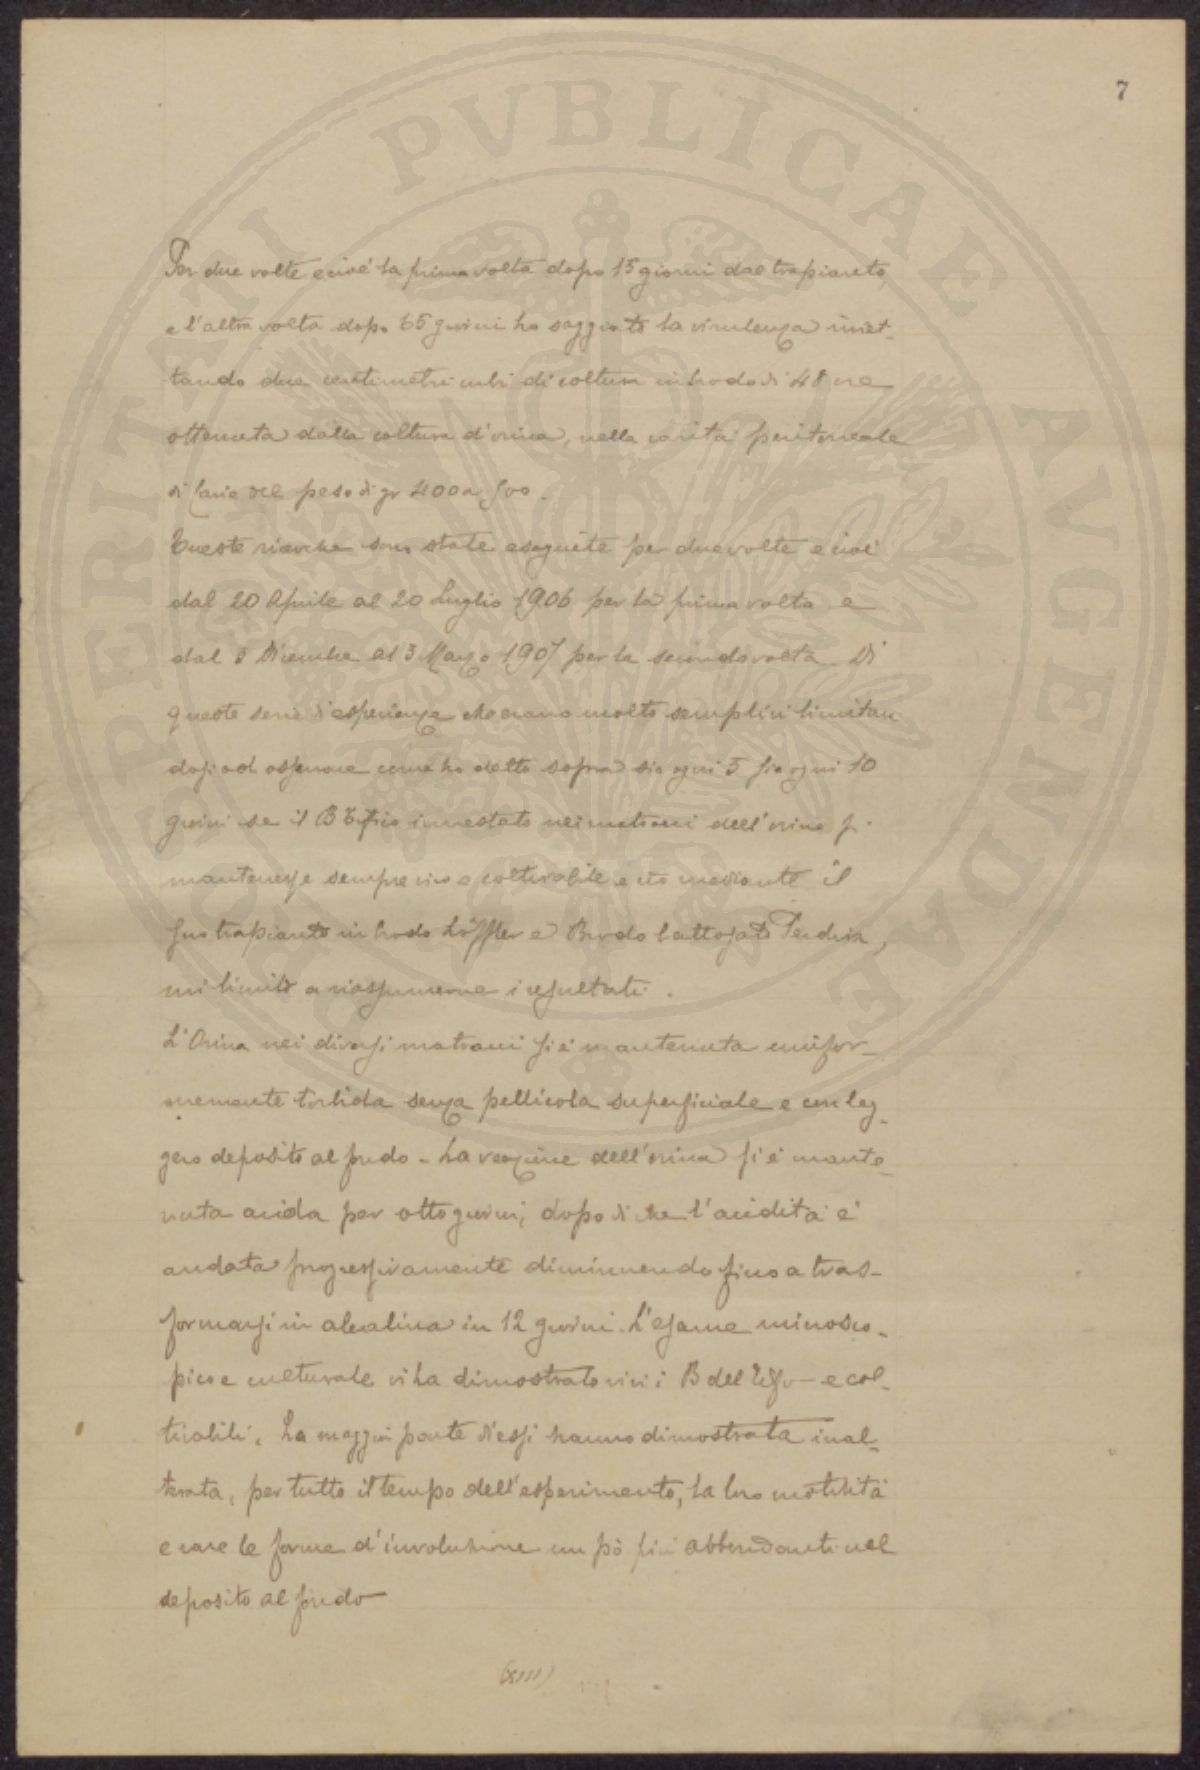 7
PROSPERITATI PVBLICAE AVGENDAE
Per due volte e cioè la prima volta dopo 15 giorni dal trapianto,
e l'altra volta dopo 65 giorni ho saggiato la virulenza iniet-
tando due centimetri cubi di coltura in brodo di 48 ore
ottenuta dalla coltura d'orina, nella cavità peritoneale
di Cavie del peso di gr 400 a 500.
Queste ricerche sono state eseguite per due volte e cioè
dal 20 Aprile al 20 Luglio 1906 per la prima volta e
dal 3 Dicembre al 3 Marzo 1907 per la seconda volta. Di
queste serie d'esperienze che erano molto semplici limitan
dosi ad osservare come ho detto sopra sia ogni 5 sia ogni 10
giorni se il B Tifico innestato nei matracci dell'orina si
mantenesse sempre vivo e coltivabile e ciò mediante il
suo trapianto in brodo Löffler e Brodo lattosato
mi limito a riassumerne i resultati.
L'Orina nei diversi matracci si è mantenuta unifor-
memente torbida senza pellicola superficiale e con leg-
gero deposito al fondo - La reazione dell'orina si è mante-
nuta acida per otto giorni, dopo di che l'acidità è
andata progressivamente diminuendo fino a tras-
formarsi in alcalina in 12 giorni. L'esame microsco-
pico e culturale vi ha dimostrato vivi i B del Tifo - e col-
tivabili. La maggior parte d'essi hanno dimostrata inal-
terata, per tutto il tempo dell'esperimento, la loro motilità
e rare le forme d'involuzione un pò più abbondanti nel
deposito al fondo
(XIII)